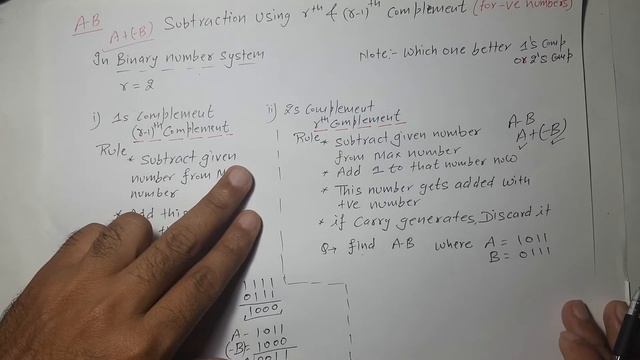 A-B
A+(-B)
Subtraction using rth & (r-1)th Complement (for -ve numbers)
In Binary number system
r = 2
Note:- which one better 1's comp
or 2's comp
i) 1s Complement
(r-1)th Complement
Rule * Subtract given
number from
number
* Add this
1111
0111
1000
A - 1011
(-B)= 1000
0011
ii) 2s Complement
rth Complement
Rule * Subtract given number
from Max number
* Add 1 to that number now
* This number gets added with
+ve number
* if Carry generates, Discard it
A-B
A+(-B)
Q→ find A-B where A = 1011
B = 0111